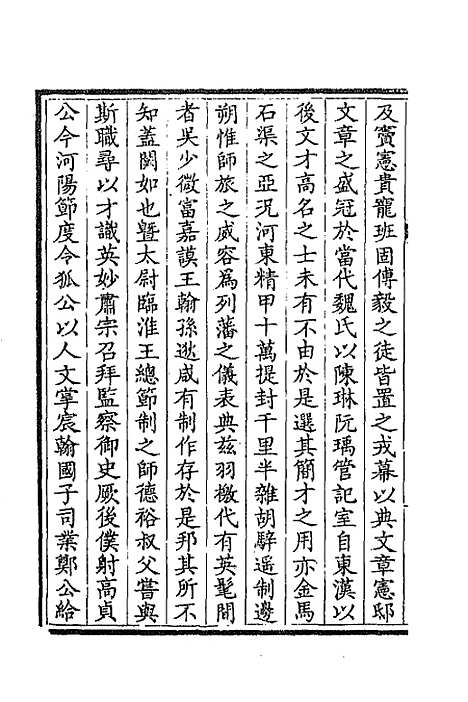 及竇憲貴寵班固傅毅之徒皆置之戎幕以典文章憲邸
文章之盛冠於當代魏氏以陳琳阮瑀管記室自東漢以
後文才高名之士未有不由於是選其簡才之用亦金馬
石渠之亞況河東精甲十萬提封千里半雜胡騎遥制邊
朔惟師旅之威容為列藩之儀表典兹羽檄代有英髦間
者吳少微富嘉謨王翰孫逖咸有制作存於是邦其所不
知蓋闕如也暨太尉臨淮王總節制之師德裕叔父嘗與
斯職尋以才識英妙肅宗召拜監察御史厥後僕射高貞
公今河陽節度令狐公以人文掌宸翰國子司業鄭公給